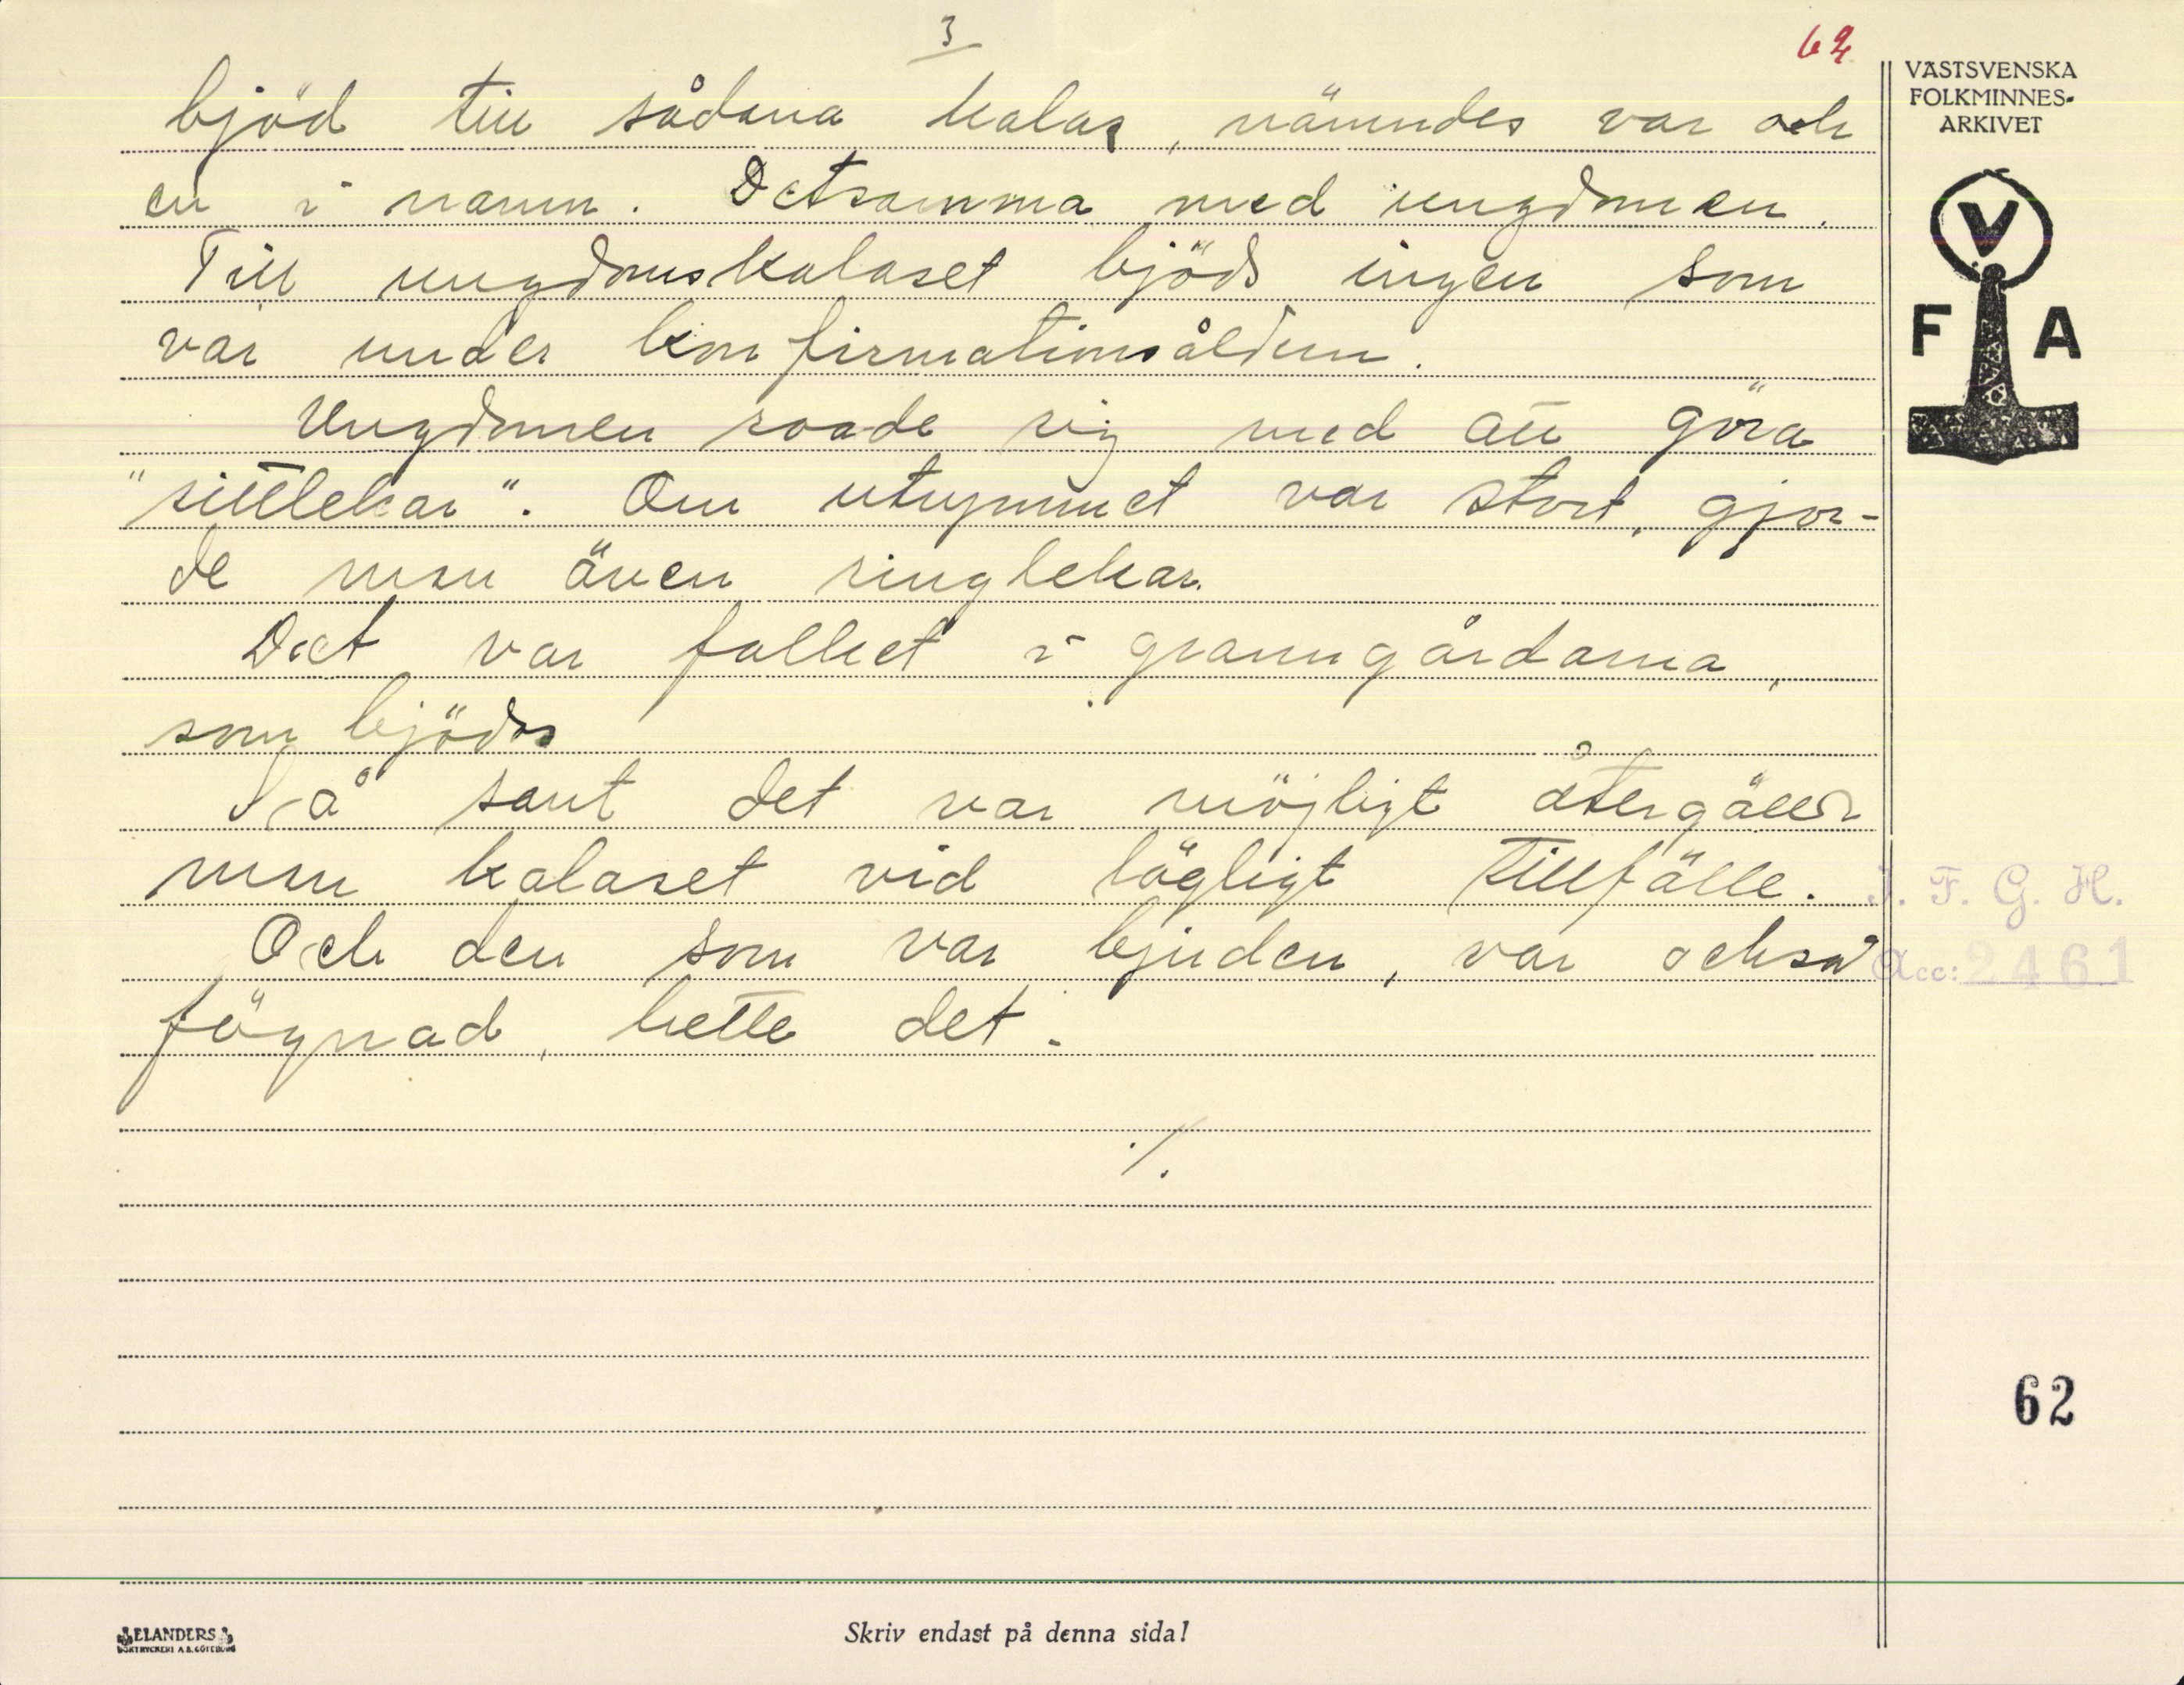 3
62
VÄSTSVENSKA
FOLKMINNES-
ARKIVET
V
F A
bjöd till sådana kalas, nämndes var och
en i namn. Detsamma med ungdomen.
Till ungdomskalaset bjöds ingen som
var under konfirmationsåldern.
Ungdomen roade sig med att göra
"sittlekar". Om utrymmet var stort, gjor-
de man även ringlekar.
Det var folket i granngårdarna,
som bjödos
Så sant det var möjligt återgällde
man kalaset vid lägligt tillfälle.
Och den som var bjuden, var också
fögnad, hette det.
./.
I. F. G. H.
Acc: 2461
62
ELANDERS
BOKTRYCKERI A.B. GÖTEBORG
Skriv endast på denna sida!